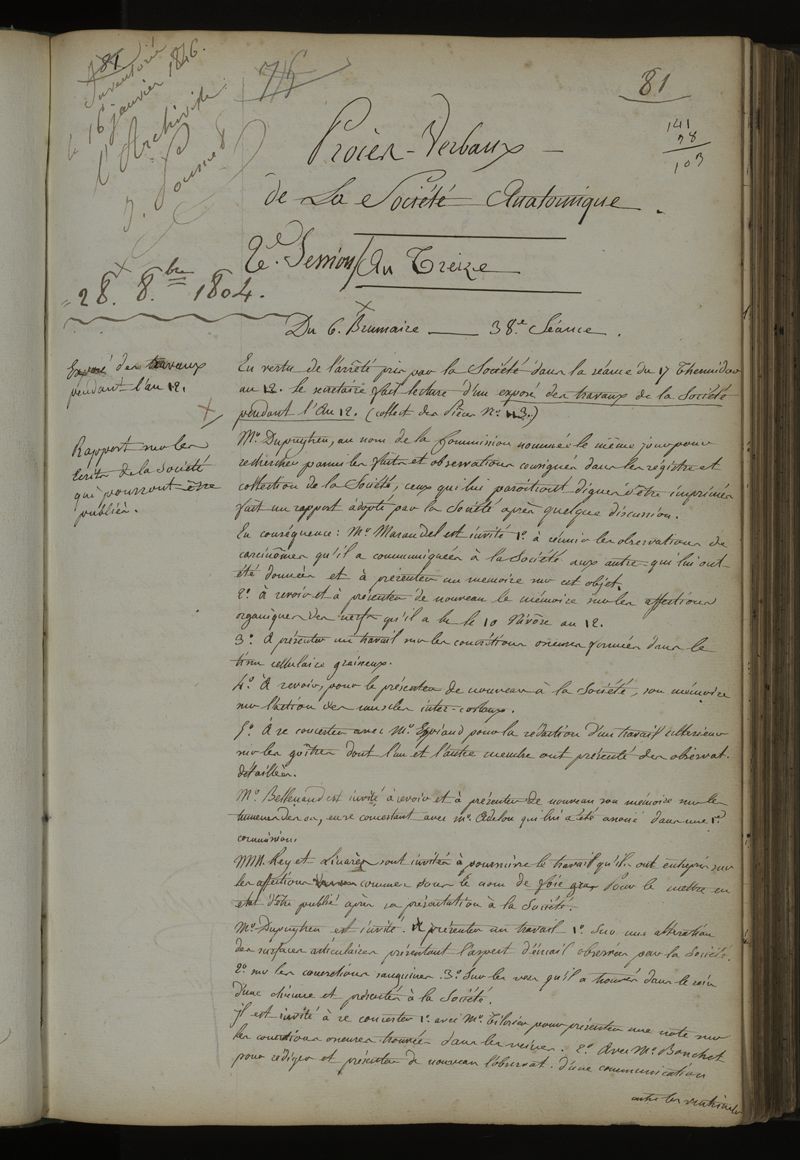 81
Inventorié
le 16 janvier 1846.
l'Archiviste
81
141
38
103
Procès-Verbaux
de La Société Anatomique.
2e. Session / An Treize
28. 8.bre 1804.
Du 6. Brumaire — 38.e Séance.
Exposé des travaux
pendant l'an 12.
En vertu de l'arrêté pris par la Société dans la séance du 17 Thermidor
an 12. le secrétaire fait lecture d'un exposé des travaux de la Société
pendant l'An 12. (collect des Pièces No. 113.)
Rapport sur les
écrits de la Société
qui pourront être
publiés.
Mr. Dupuytren, au nom de la Commission nommée le même jour pour
rechercher parmi les faits et observations consignés dans les registre et
collection de la Société, ceux qui lui paroitront dignes d'être imprimés
fait un rapport adopté par la Société après quelque discussion.
En conséquence: Mr. Marandel est invité 1.o à réunir les observations de
carcinômes qu'il a communiquées à la Société aux autres qui lui ont
été données et à présenter un mémoire sur cet objet.
2.o à revoir et à présenter de nouveau le mémoire sur les affections
organiques des nerfs qu'il a lu le 10 Nivôse an 12.
3.o A présenter un travail sur les concrétions osseuses formées dans le
tissu cellulaire graisseux.
4.o A revoir, pour le présenter de nouveau à la Société, son mémoire
sur l'action des muscles inter-costaux.
5.o A se concerter avec Mr. pour la rédaction d'un travail ultérieur
sur les goîtres dont l'un et l'autre membre ont présenté des observat.
détaillées.
Mr. est invité à revoir et à présenter de nouveau son mémoire sur les
tumeurs des os, en se concertant avec Mr. Adelon qui lui a été associé dans une 1.re
commission.
MM. Rey et Linarès sont invités à poursuivre le travail qu'ils ont entrepris sur
les affections connues sous le nom de foie gras pour le mettre en
état d'être publié après sa présentation à la Société.
Mr. Dupuytren est invité. à présenter un travail 1.o Sur une altération
des surfaces articulaires présentant l'aspect d'émail observées par la Société.
2.o sur les concrétions sanguines. 3.o Sur les vers qu'il a trouvés dans le sein
d'une et présentés à la Société.
Il est invité à se concerter 1.o avec Mr. pour présenter une note sur
les concrétions osseuses trouvées dans les veines. 2.o Avec Mr.
pour rédiger et présenter de nouveau l'observat. d'une communication
entre les ventricules